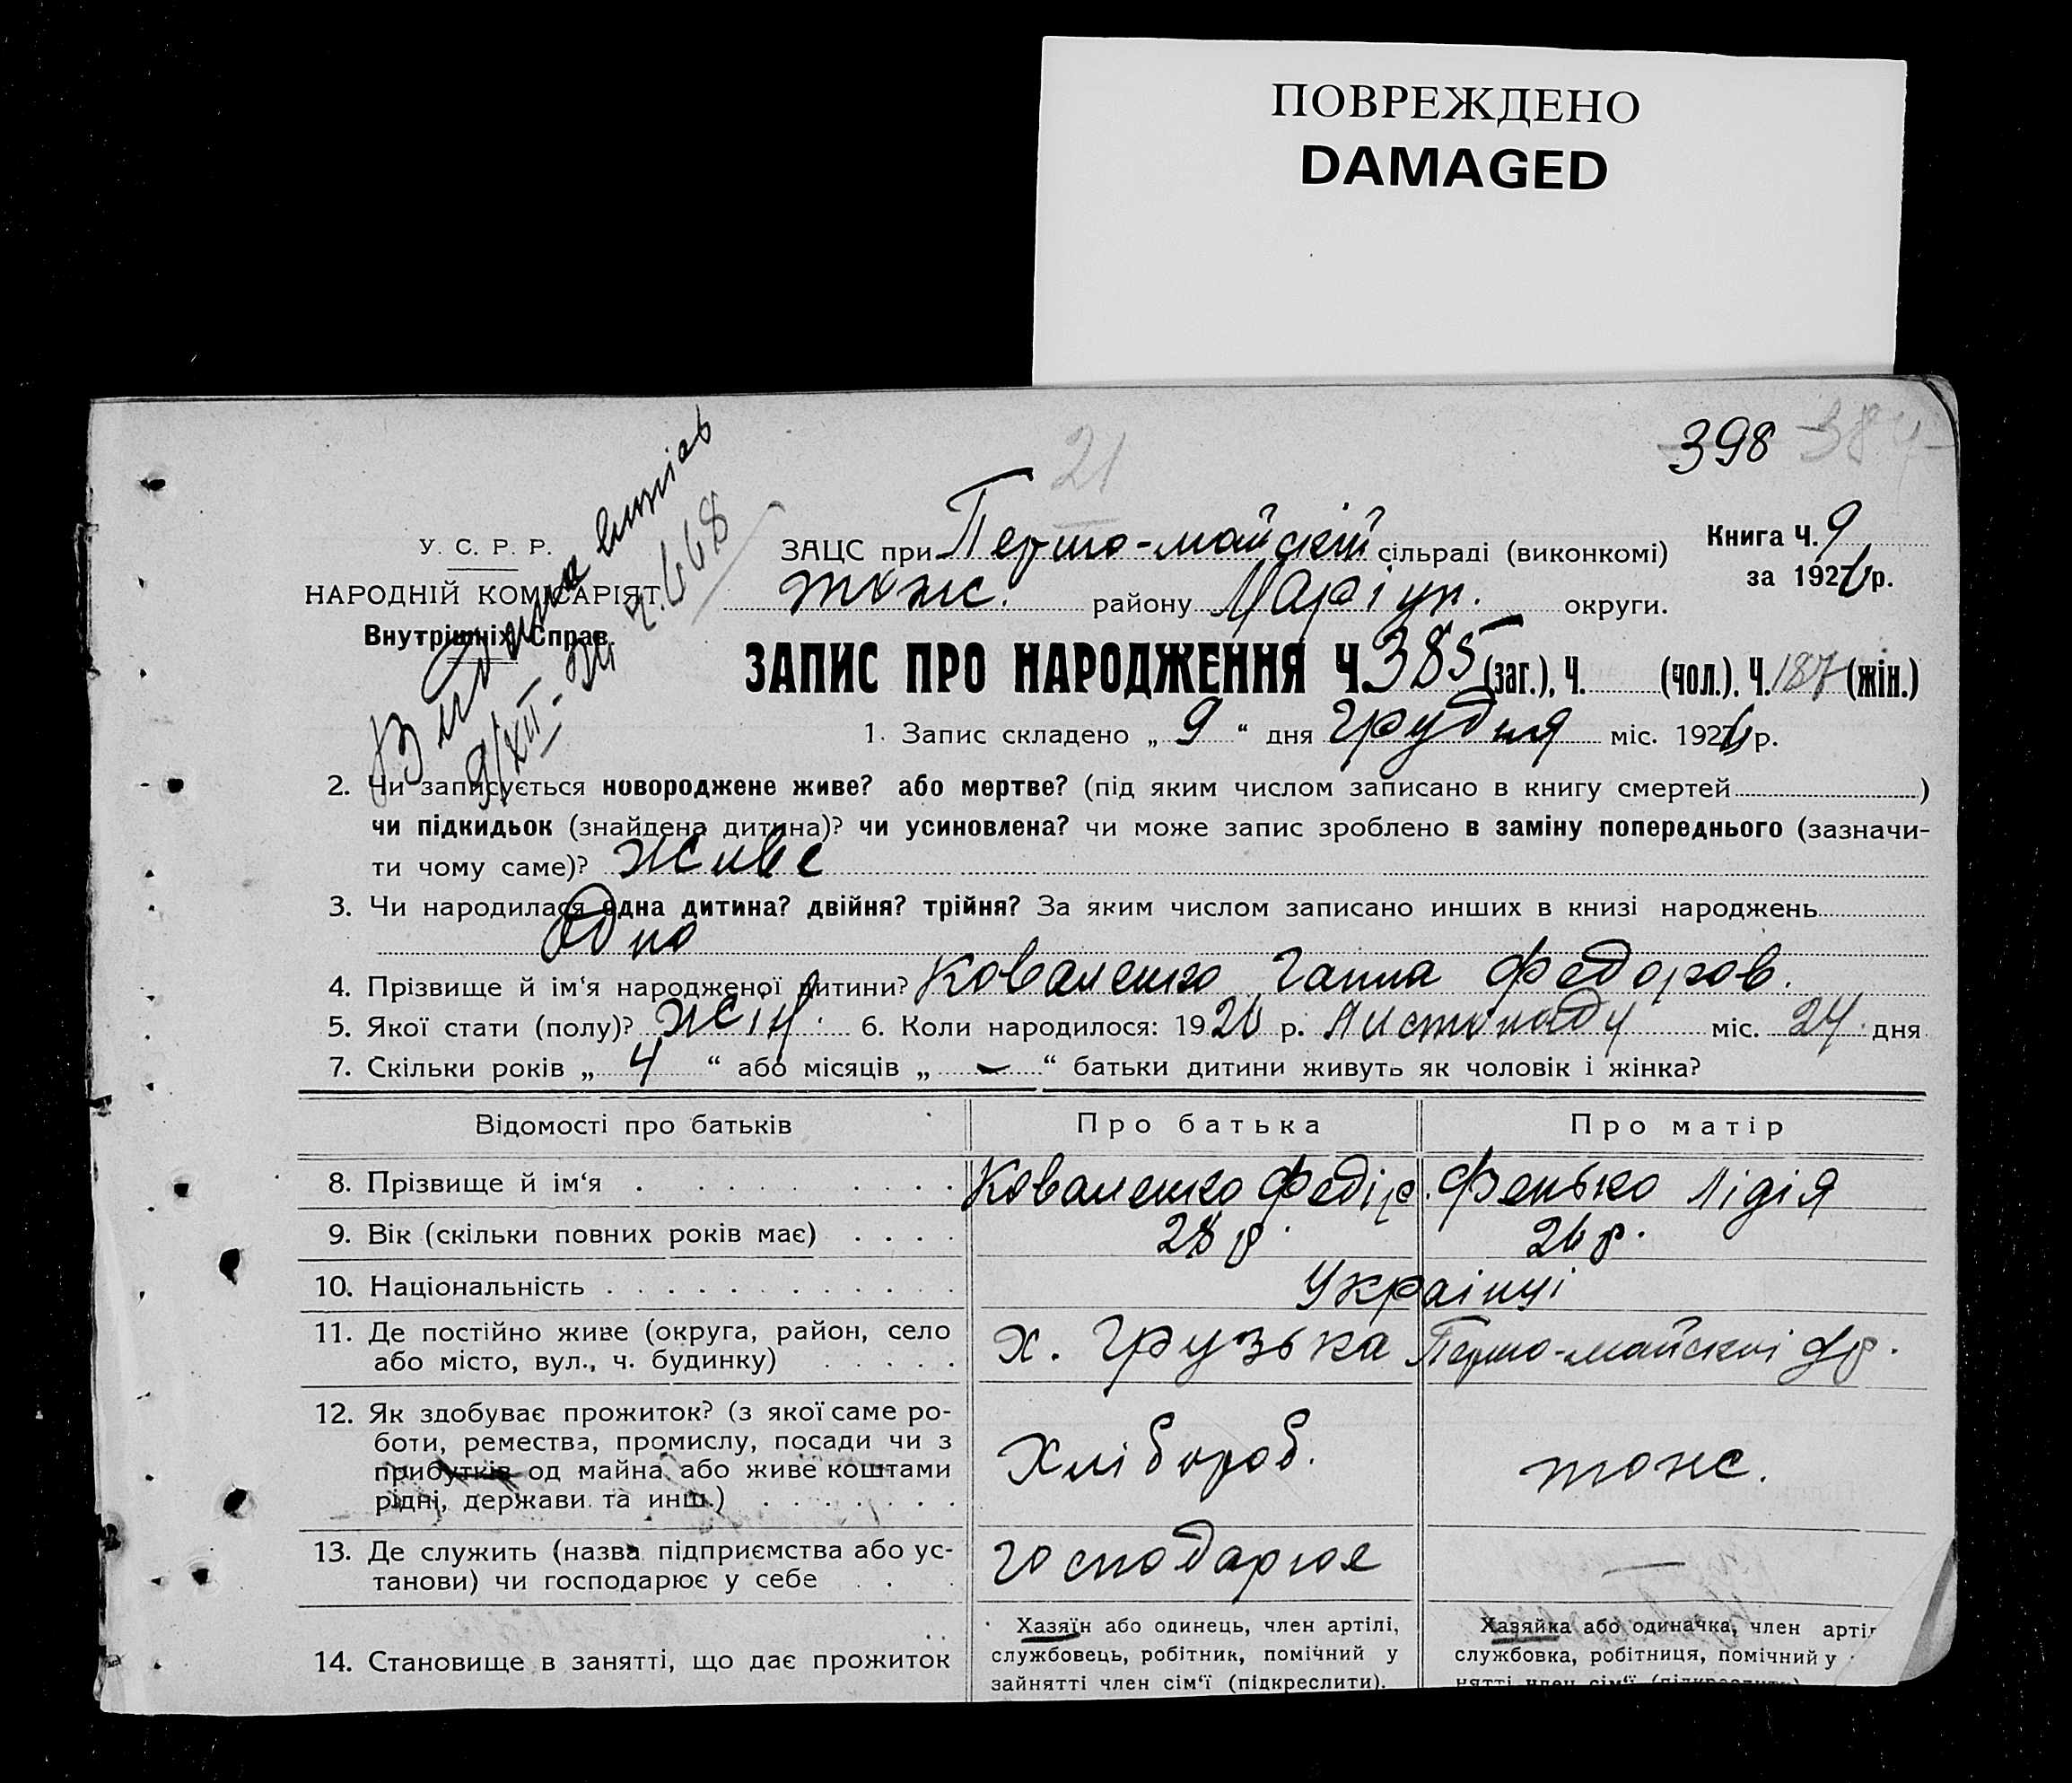 ПОВРЕЖДЕНО
DAMAGED
398
384
21
Видана виписъ
9/XII-26 ч. 668
У. С. Р. Р.
НАРОДНІЙ КОМІСАРІЯТ
Внутрішніх Справ.
ЗАЦС при Першо-майській сільраді (виконкомі)
тож. району Маріуп. округи.
Книга Ч. 9
за 1926 р.
ЗАПИС ПРО НАРОДЖЕННЯ Ч. 385 (заг.), Ч. (чол.). Ч. 187 (жін.)
1. Запис складено „ 9 “ дня Грудня міс. 1926 р.
2. Чи записується новороджене живе? або мертве? (під яким числом записано в книгу смертей )
чи підкидьок (знайдена дитина)? чи усиновлена? чи може запис зроблено в заміну попереднього (зазначи-
ти чому саме)? живе
3. Чи народилася одна дитина? двійня? трійня? За яким числом записано инших в книзі народжень
Одно
4. Прізвище й ім‘я народженої дитини? Коваленко Ганна Федоров.
5. Якої стати (полу)? жін. 6. Коли народилося: 1926 р. Листопаду міс. 24 дня
7. Скільки років „ 4 “ або місяців „ — “ батьки дитини живуть як чоловік і жінка?
Відомості про батьків Про батька Про матір
8. Прізвище й ім‘я Коваленко Федір. Фенько Лідія
9. Вік (скільки повних років має) 28 р. 26 р.
10. Національність Украінці
11. Де постійно живе (округа, район, село
або місто, вул., ч. будинку) х. Грузька Першо-майскоі
12. Як здобуває прожиток? (з якої саме ро-
боти, ремества, промислу, посади чи з
прибутків од майна або живе коштами
рідні, держави та инш.) Хлібороб. тож.
13. Де служить (назва підприємства або ус-
танови) чи господарює у себе господарює —
14. Становище в занятті, що дає прожиток
Хазяїн або одинець, член артілі,
службовець, робітник, помічний у
зайнятті член сім‘ї (підкреслити).
Хазяйка або одиначка, член артіл
службовка, робітниця, помічний у
нятті член сім‘ї (підкреслити)